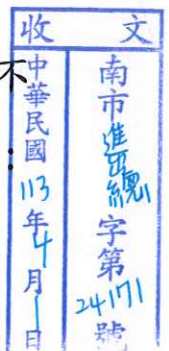 收文
南市進出總字第24171號
中華民國113年4月1日
不
：